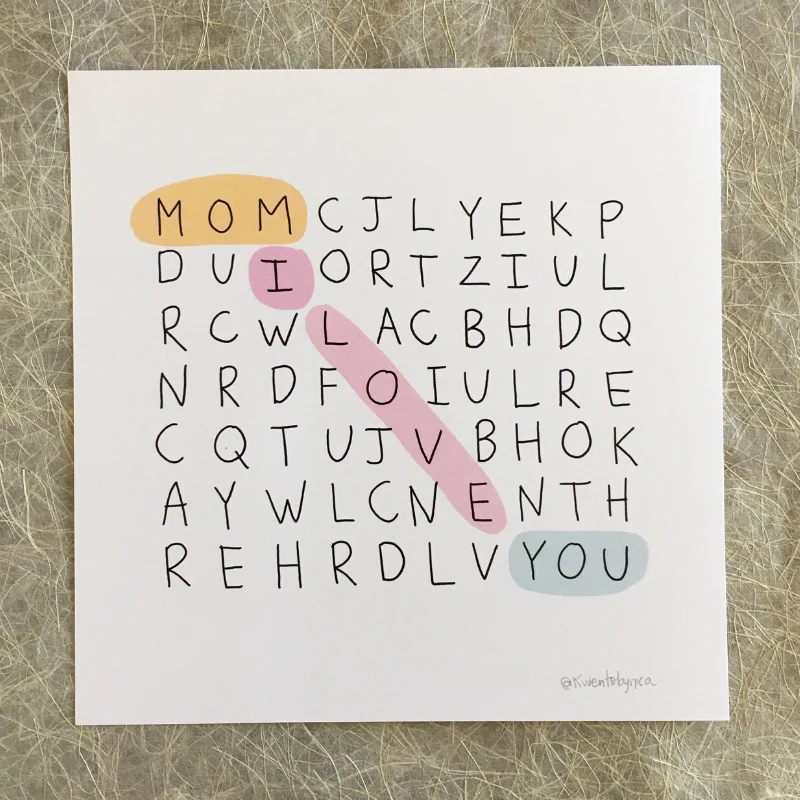 M O M C J L Y E K P
D U I O R T Z I U L
R C W L A C B H D Q
N R D F O I U L R E
C Q T U J V B H O K
A Y W L C N E N T H
R E H R D L V Y O U